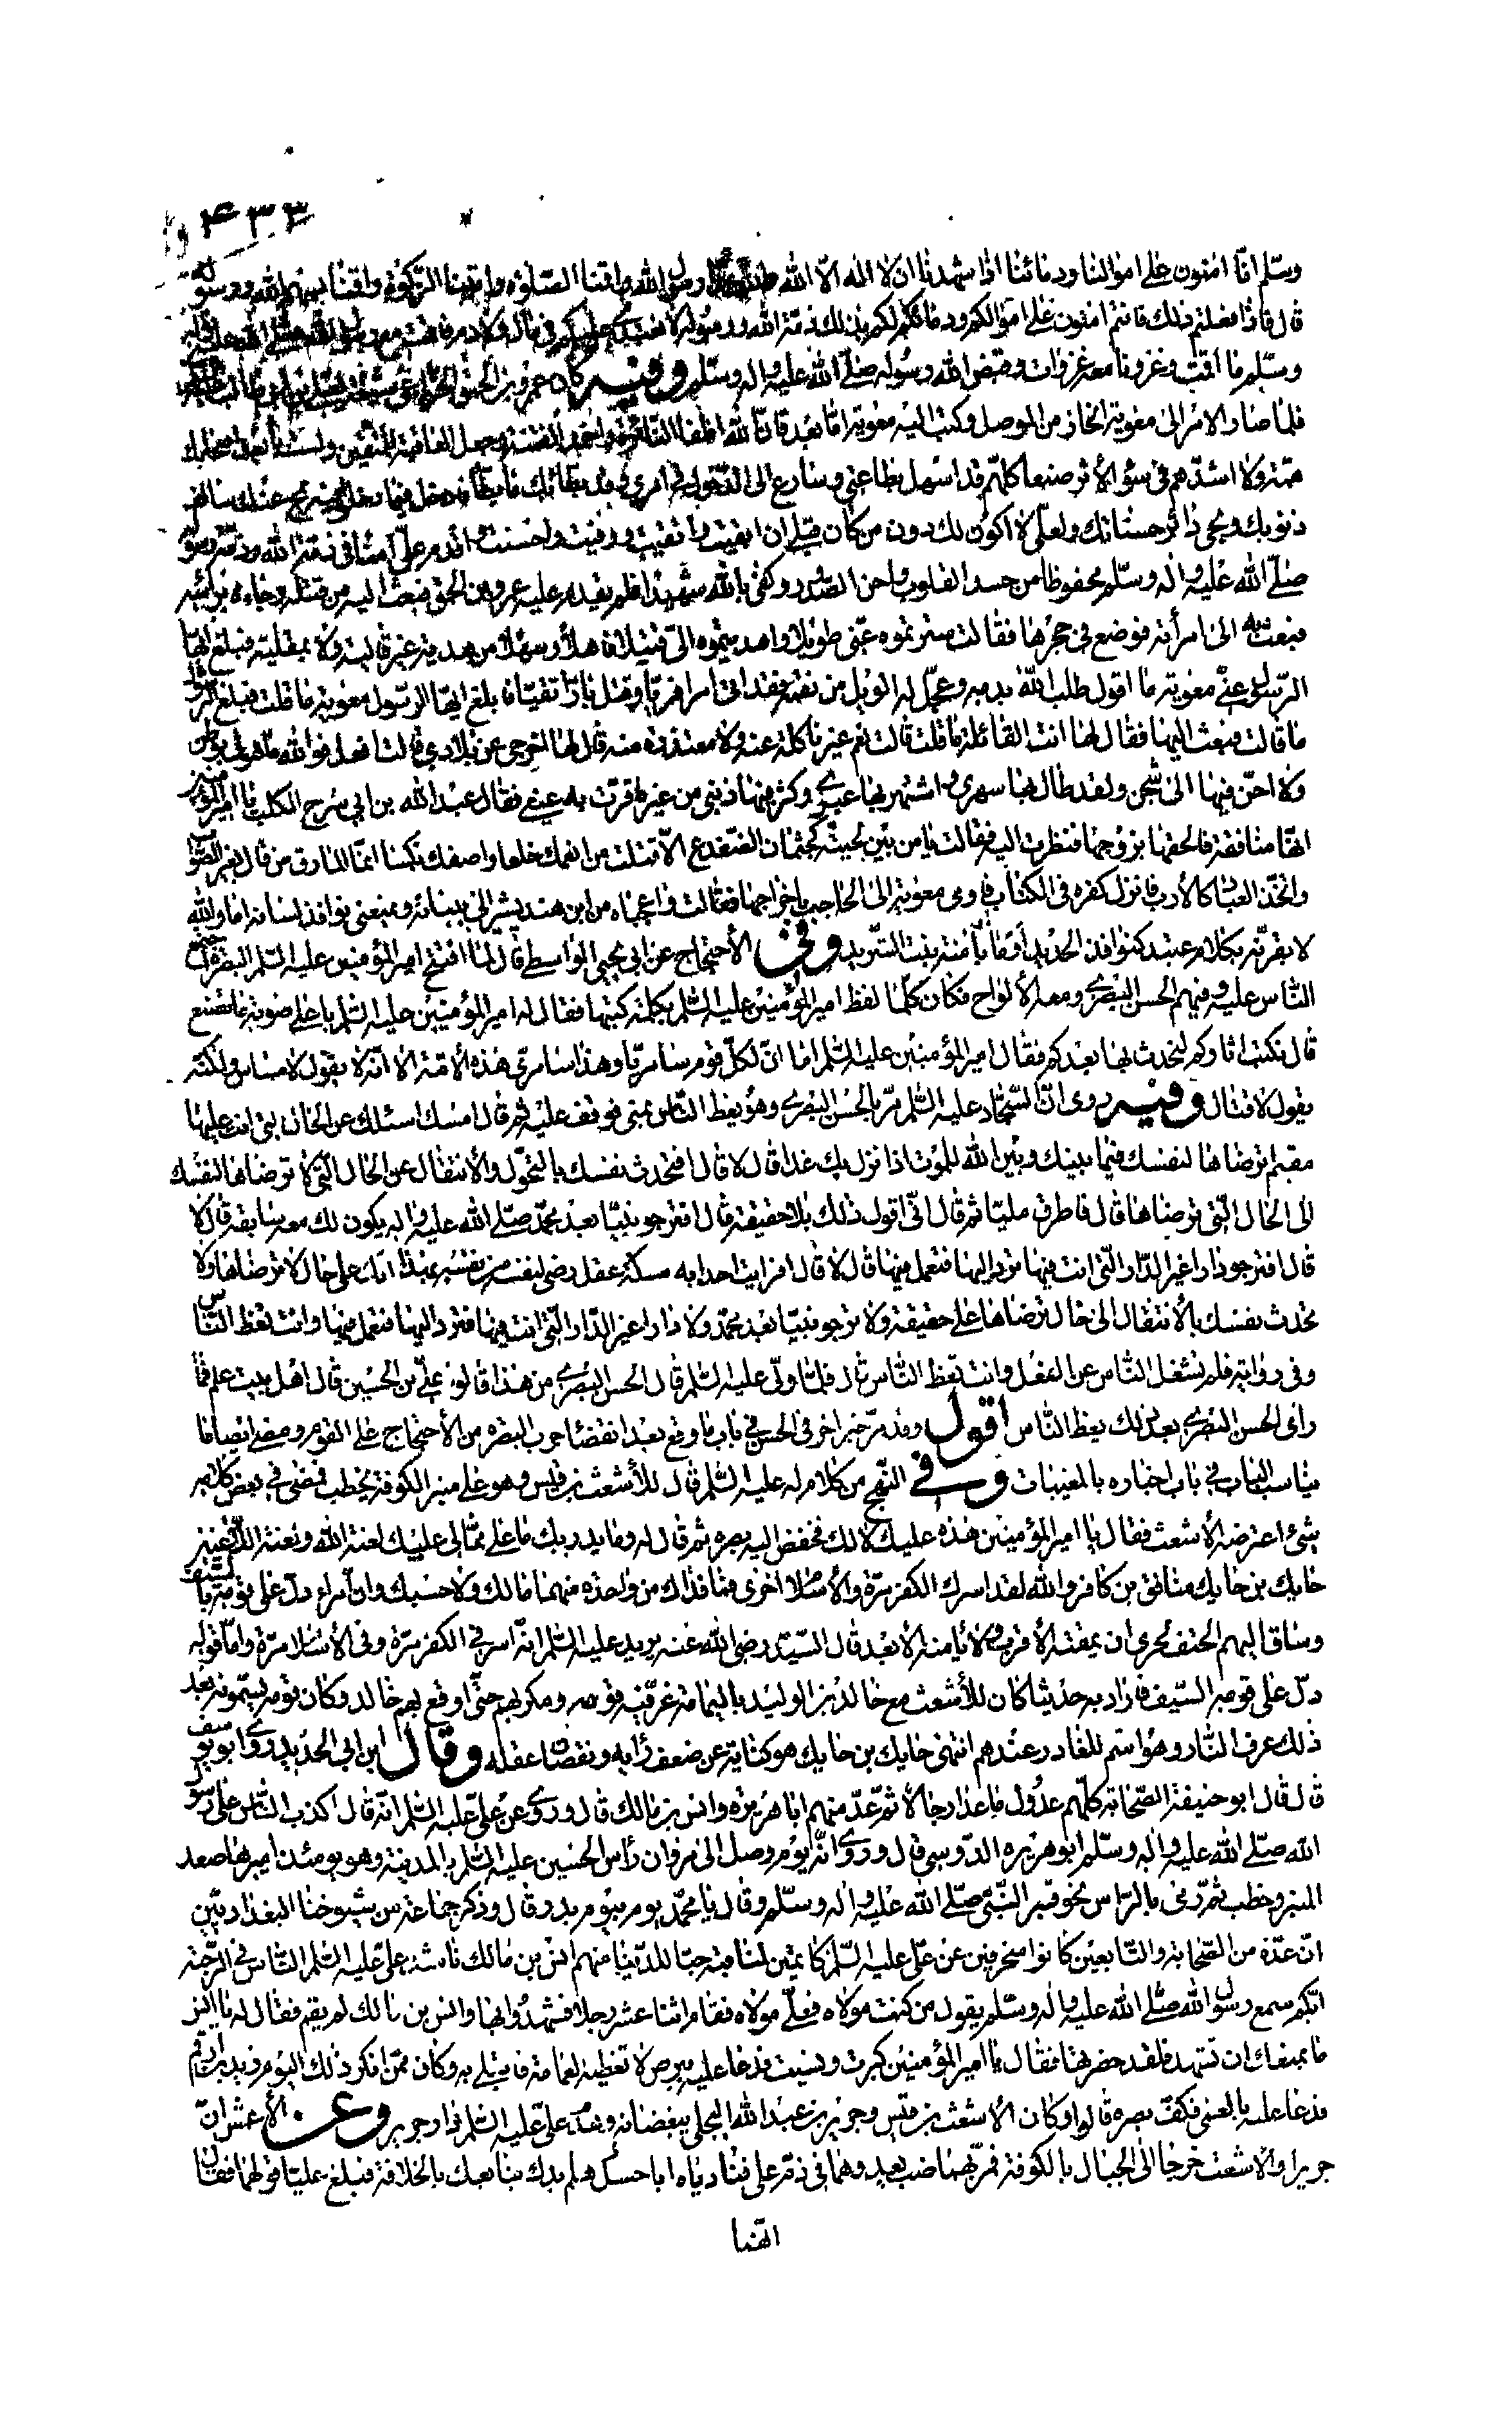 ٤٣٣
وسلم انا امنون على اموالنا ودمائنا اذا شهدنا ان لا اله الا الله رسول الله واقمنا الصلوة واتينا الزكوة واقمنا بسهم الله ورسوله
قال فاذا فعلتم ذلك فانتم امنون على اموالكم ودمائكم لكم بذلك ذمة الله ورسوله لا نعتدي عليكم في مال ولا دم فاقمت مع رسول الله صلى الله عليه واله
وسلم ما اقمت وغزونا معه غزوات وقبض الله رسوله صلى الله عليه واله وسلم وفيه كان عمرو بن الحمق الخزاعي شيعة لعلي بن ابي طالب
فلما صار الامر الى معوية انحاز من الموصل وكتب اليه معوية اما بعد فان الله اطفأ النائرة واخمد الفتنة وجعل العاقبة للمتقين ولست بابعد اصحابك
همة ولا اشدهم في سوء الأثر صنعا كلهم قد اسهل بطاعتي وسارع الى الدخول في امري وقد بطأ بك ما بطأ فادخل فيما دخل فيه الناس يمح عنك سالف
ذنوبك ويحيى داثر حسناتك ولعلي لا اكون لك دون من كان قبلي ان ابقيت واتقيت ووفيت واحسنت فاقدم علي امنا في ذمة الله وذمة رسوله
صلى الله عليه واله وسلم محفوظا من حسد القلوب واحن الصدور وكفى بالله شهيدا فلم يقدم عليه عمرو بن الحمق فبعث اليه من قتله وجاء برأسه
فبعث به الى امرأته فوضع في حجرها فقالت سترتموه عني طويلا واهديتموه الي قتيلا فاهلا وسهلا من هدية غير قالية ولا بمقلية فبلغ ايها
الرسول عني معوية ما اقول طلب الله بدمه وعجل له الويل من نقمه فقد اتى امرا فريا وقتل بارا تقيا فابلغ ايها الرسول معوية ما قلت فبلغ الرسول
ما قالت فبعث اليها فقال لها انت القائلة ما قلت قالت نعم غير ناكلة عنه ولا معتذرة منه قال لها اخرجي من بلادي قالت افعل فوالله ما هو لي بوطن
ولا احن فيها الى شجن ولقد طال بها سهري واشتهر بها عبري وكثر فيها ذنبي من غير ما قرت به عيني فقال عبد الله بن ابي سرح الكلب يا امير المؤمنين
انها منافقة فالحقها بزوجها فنظرت اليه فقالت يا من بين لحييه كجثمان الضفدع الا قتلت من انعمك خلعا واصفاك بكسا انما المارق من قال بغير الصواب
واتخذ العباد كالأرباب فانزل كفره في الكتاب فاومى معوية الى الحاجب باخراجها فقالت واعجباه من ابن هند يشير الي ببنانه ويمنعني نوافذ لسانه اما والله
لابقرنه بكلام عتيد كنوافذ الحديد او ما انا بآمنة بنت الشريد وفي الأحتجاج عن ابي يحيى الواسطي قال لما افتتح امير المؤمنين عليه السلم البصرة اجتمع
الناس عليه وفيهم الحسن البصري ومعه الألواح فكان كلما لفظ امير المؤمنين عليه السلم بكلمة كتبها فقال له امير المؤمنين عليه السلم باعلى صوته ما تصنع
قال نكتب اثاركم لنحدث بها بعدكم فقال امير المؤمنين عليه السلم اما ان لكل قوم سامريا وهذا سامري هذه الأمة الا انه لا يقول لا مساس ولكنه
يقول لا قتال وفيه روى ان السجاد عليه السلم مر بالحسن البصري وهو يعظ الناس بمنى فوقف عليه ثم قال امسك اسئلك عن الحال التي انت عليها
مقيم اترضاها لنفسك فيما بينك وبين الله للموت اذا نزل بك غدا قال لا قال افتحدث نفسك بالتحول والأنتقال عن الحال التي لا ترضاها لنفسك
الى الحال التي ترضاها قال فاطرق مليا ثم قال اني اقول ذلك بلا حقيقة قال افترجو نبيا بعد محمد صلى الله عليه واله يكون لك معه سابقة قال لا
قال افترجو دارا غير الدار التي انت فيها ترد اليها فتعمل فيها قال لا قال افرايت احدا به مسكة عقل رضي لنفسه من نفسه بهذا انك على حال لا ترضاها ولا
تحدث نفسك بالأنتقال الى حال ترضاها على حقيقة ولا ترجو نبيا بعد محمد ولا دارا غير الدار التي انت فيها فترد اليها فتعمل فيها وانت تعظ الناس
وفي رواية فلم تشغل الناس عن الفعل وانت تعظ الناس قال فلما ولى عليه السلم قال الحسن البصري من هذا قالوا علي بن الحسين قال اهل بيت علم فما
راى الحسن البصري بعد ذلك يعظ الناس اقول وقد مر خبر اخر في الحسن في باب ما وقع بعد انقضاء حرب البصرة من الأحتجاج على القوم ومضى ايضا ما
يناسب الباب في باب اخباره بالمغيبات وفي النهج من كلام له عليه السلم قال للأشعث بن قيس وهو على منبر الكوفة يخطب فمضى في بعض كلامه
شئ اعترضه الأشعث فقال يا امير المؤمنين هذه عليك لا لك فخفض اليه بصره ثم قال له وما يدريك ما علي مما لي عليك لعنة الله ولعنة اللاعنين
حايك بن حايك منافق بن كافر والله لقد اسرك الكفر مرة والأسلام اخرى فما فداك من واحدة منهما مالك ولا حسبك وان امرأ دل على قومه السيف
وساق اليهم الحتف لحري ان يمقته الأقرب ولا يأمنه الأبعد قال السيد رضي الله عنه يريد عليه السلم انه اسر في الكفر مرة وفي الأسلام مرة واما قوله
دل على قومه السيف فاراد به حديثا كان للأشعث مع خالد بن الوليد باليمامة غر فيه قومه ومكر بهم حتى اوقع بهم خالد وكان قومه يسمونه بعد
ذلك عرف النار وهو اسم للغادر عندهم انتهى حايك بن حايك هو كناية عن ضعف رايه ونقصان عقله وقال ابن ابي الحديد روى ابو يوسف
قال قال ابو حنيفة الصحابة كلهم عدول ما عدا رجالا ثم عد منهم ابا هريرة وانس بن مالك قال وروى عن علي عليه السلم انه قال اكذب الناس على رسول
الله صلى الله عليه واله وسلم ابو هريرة الدوسي قال وروى انه يوم وصل الى مروان رأس الحسين عليه السلم بالمدينة وهو يومئذ اميرها صعد
المنبر وخطب ثم رمى بالراس نحو قبر النبي صلى الله عليه واله وسلم وقال يا محمد يوم بيوم بدر وقال وذكر جماعة من شيوخنا البغداديين
ان عدة من الصحابة والتابعين كانوا منحرفين عن علي عليه السلم كاتمين لمناقبه حبا للدنيا منهم انس بن مالك ناشد علي عليه السلم الناس في الرحبة
ايكم سمع رسول الله صلى الله عليه واله وسلم يقول من كنت مولاه فعلي مولاه فقام اثنا عشر رجلا فشهدوا بها وانس بن مالك لم يقم فقال له يا انس
ما يمنعك ان تشهد فلقد حضرتها فقال يا امير المؤمنين كبرت ونسيت فدعا عليه ببرص لا تغطيه العمامة فابتلي به وكان ممن انكر ذلك اليوم زيد بن ارقم
فدعا عليه بالعمى فكف بصره قالوا وكان الأشعث بن قيس وجرير بن عبد الله البجلي يبغضانه وهدم علي عليه السلم دار جرير وعن الأعمش ان
جريرا والأشعث خرجا الى الجبال بالكوفة فمر بهما ضب يعدو وهما في ذم علي فنادياه ابا حسل هلم يدك نبايعك بالخلافة فبلغ عليا قولهما فقال
انهما